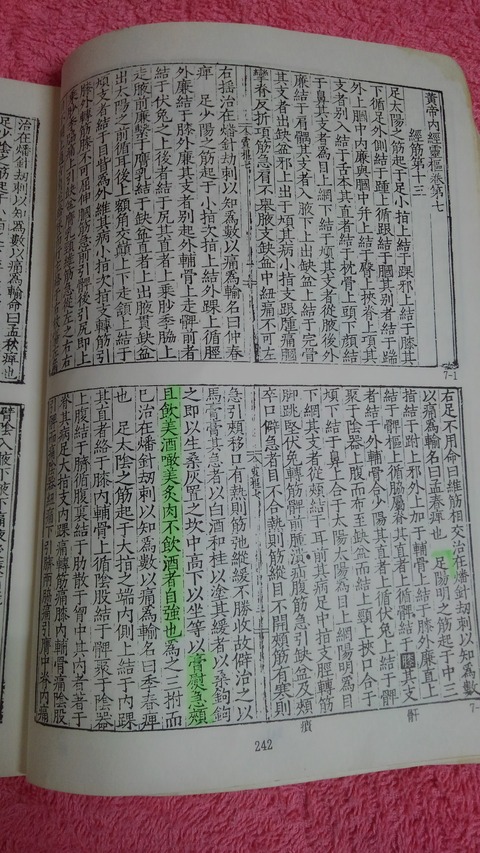 黃帝內經靈樞卷第七
經筋第十三
足太陽之筋起于足小指上結于踝邪上結于膝其
下循足外側結于踵上循跟結于膕其別者結于踹
外上膕中內廉與膕中并上結于臀上挾脊上項其
支者別入結于舌本其直者結于枕骨上頭下顏結
于鼻其支者為目上網下結于頄其支者從腋後外
廉結于肩髃其支者入腋下上出缺盆上結于完骨
其支者出缺盆邪上出于頄其病小指支跟腫痛膕
攣脊反折項筋急肩不舉腋支缺盆中紐痛不可左
右搖治在燔針劫刺以知為數以痛為輸名曰仲春
痺 足少陽之筋起于小指次指上結外踝上循脛
外廉結于膝外廉其支者別起外輔骨上走髀前者
結于伏兔之上後者結于尻其直者上乘䏚季脇上
走腋前廉繫于膺乳結于缺盆直者上出腋貫缺盆
出太陽之前循耳後上額角交巔上下走頷上結于
頄支者結于目眥為外維其病小指次指支轉筋引
膝外轉筋膝不可屈伸膕筋急前引髀後引尻即上
乘䏚季脇痛上引缺盆膺乳頸維筋急從左之右右
7-1
右足不用命曰維筋相交治在燔針劫刺以知為數
以痛為輸名曰孟春痺也 足陽明之筋起于中三
指結于跗上邪外上加于輔骨上結于膝外廉直上
結于髀樞上循脇屬脊其直者上循骭結于膝其支
者結于外輔骨合少陽其直者上循伏兔上結于髀
聚于陰器上腹而布至缺盆而結上頸上挾口合于
頄下結于鼻上合于太陽太陽為目上網陽明為目
下網其支者從頰結于耳前其病足中指支脛轉筋
脚跳堅伏兔轉筋髀前腫㿉疝腹筋急引缺盆及頰
卒口僻急者目不合熱則筋縱目不開頰筋有寒則
急引頰移口有熱則筋弛縱緩不勝收故僻治之以
馬膏膏其急者以白酒和桂以塗其緩者以桑鉤鉤
之即以生桑灰置之坎中高下以坐等以膏熨急頰
且飲美酒噉美炙肉不飲酒者自強也為之三拊而
已治在燔針劫刺以知為數以痛為輸名曰季春痺
也 足太陰之筋起于大指之端內側上結于內踝
其直者絡于膝內輔骨上循陰股結于髀聚于陰器
上腹結于臍循腹裏結于肋散于胸中其內者著于
脊其病足大指支內踝痛轉筋痛膝內輔骨痛陰股
引髀而痛陰器紐痛下引臍兩脇痛引膺中脊內痛
7-
骭
㿉
242
治在燔針劫刺以知為數以痛為輸命曰孟秋痺也
足少陰之筋起于小指